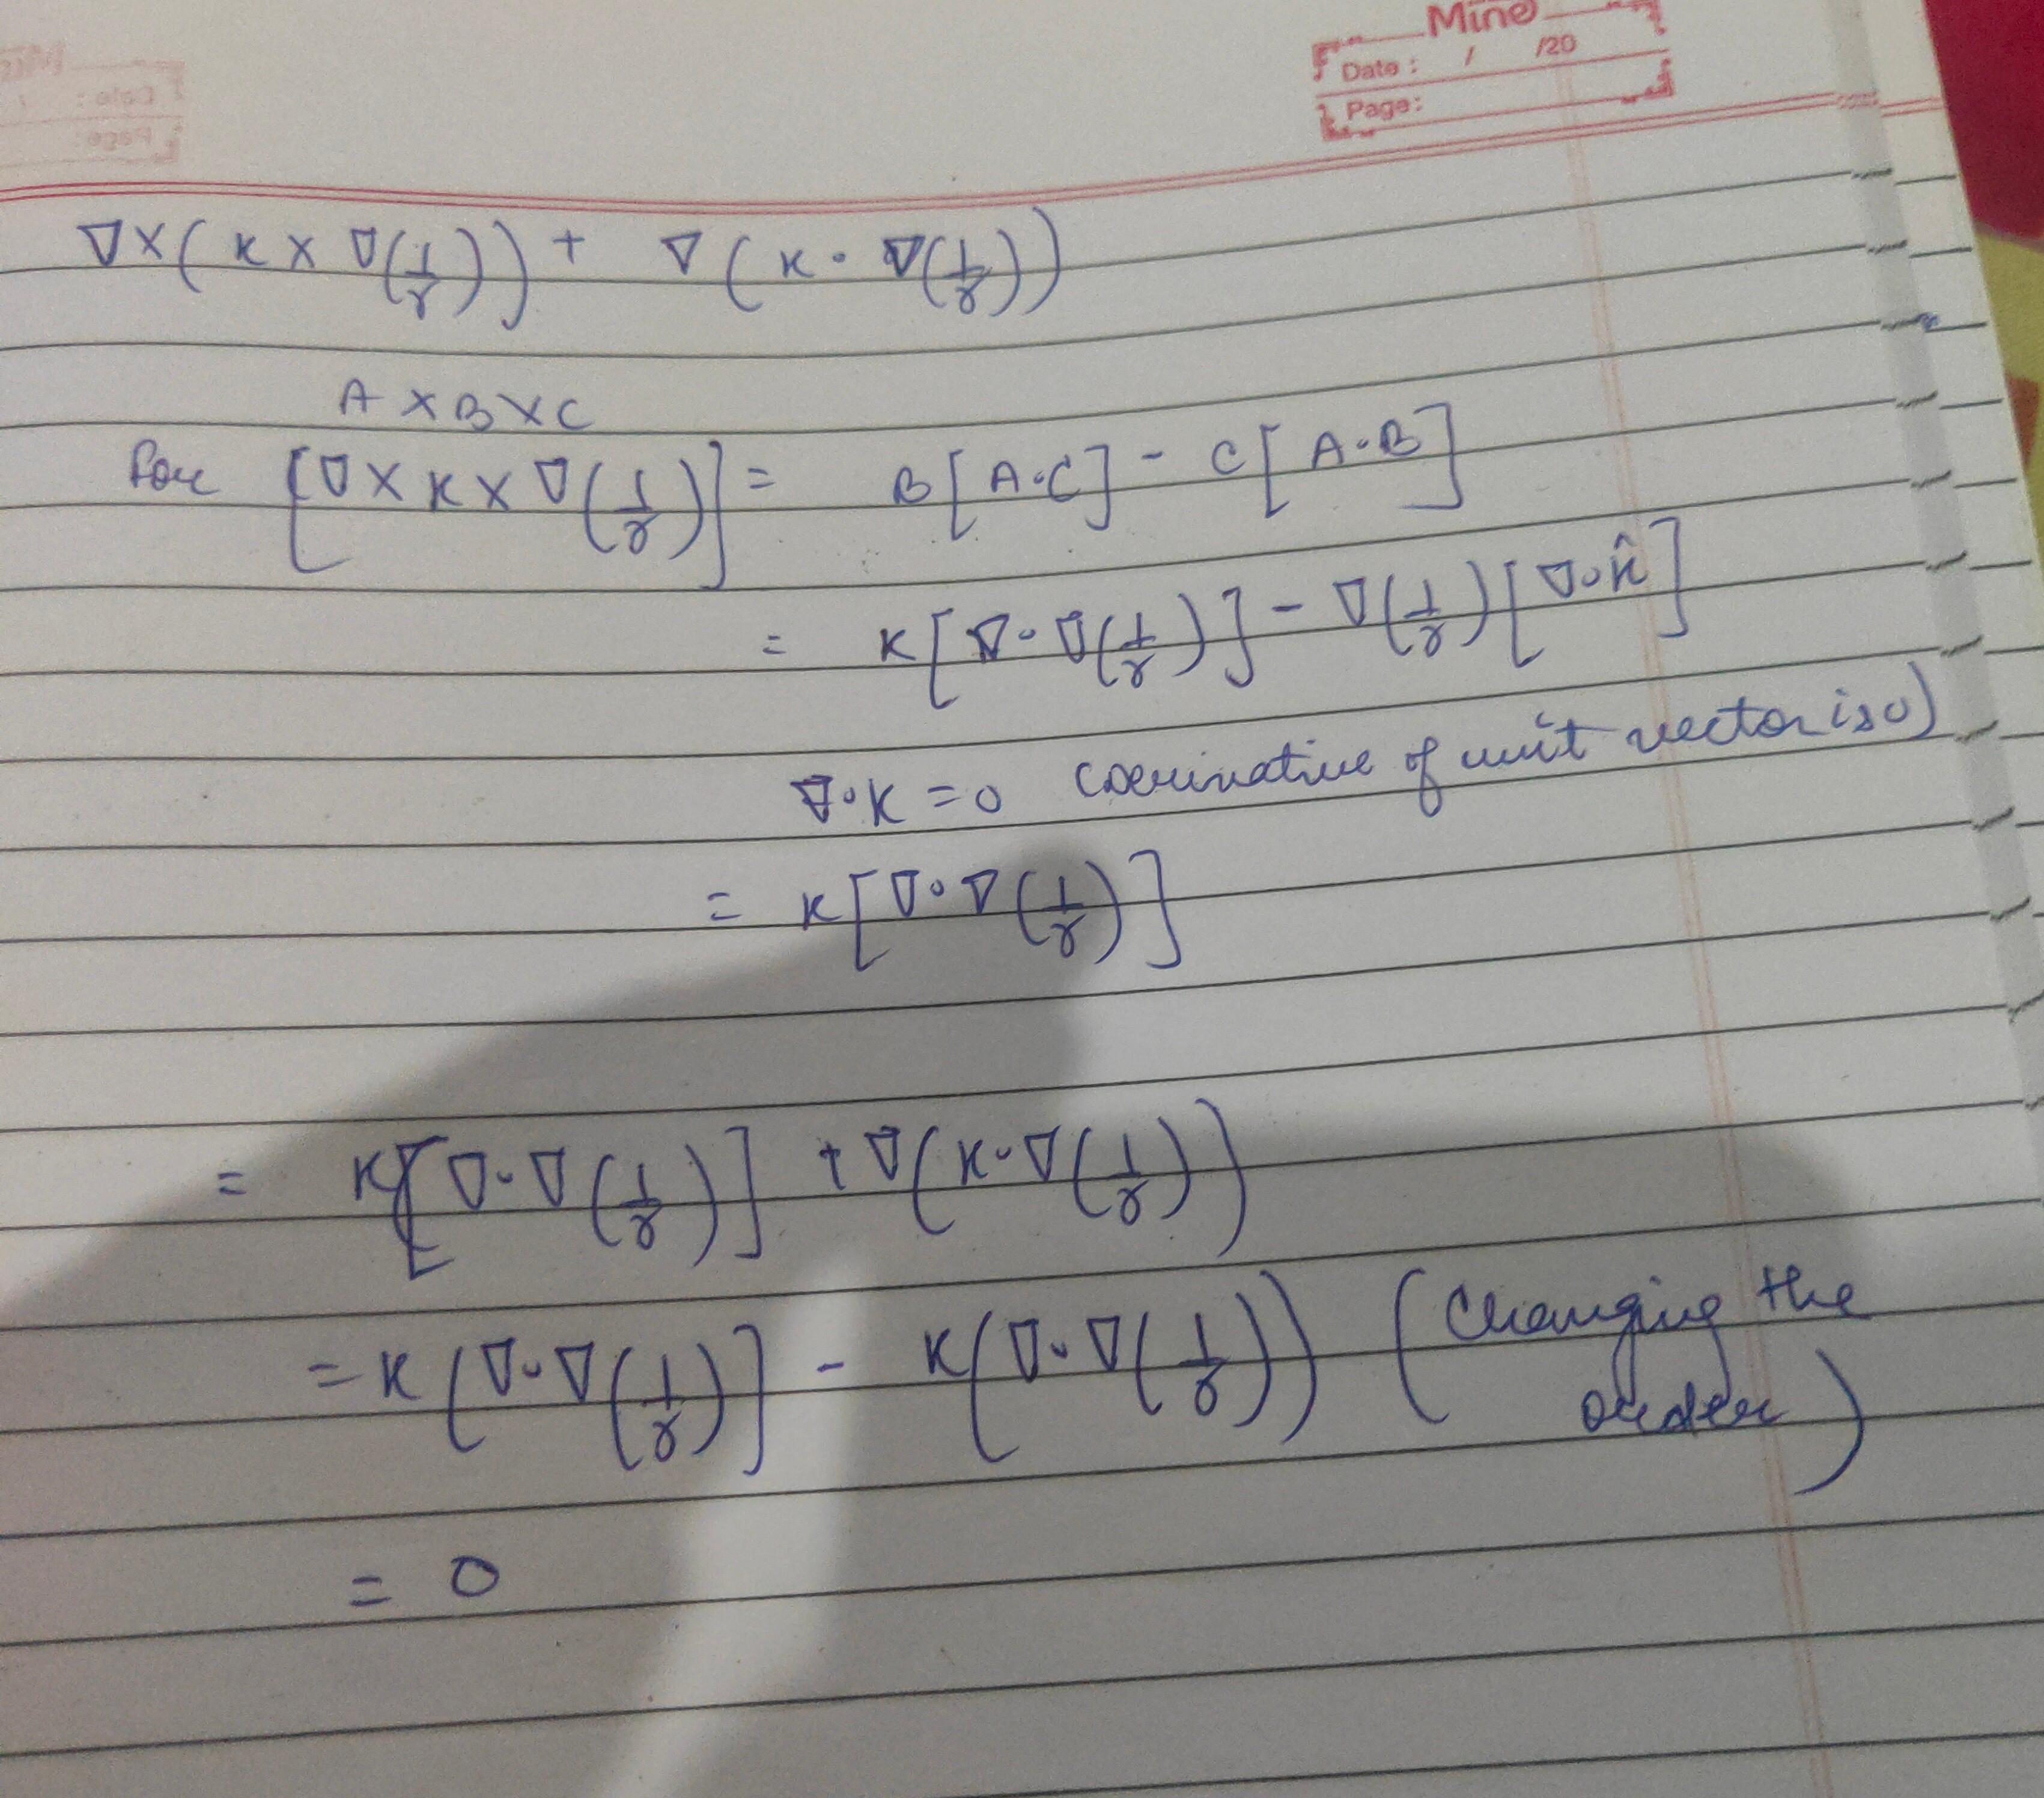 Mine
Date : / /20
Page:
∇×(K×∇(1/r)) + ∇(K·∇(1/r))
A×B×C
for [∇×K×∇(1/r)] = B[A·C] - C[A·B]
= K[∇·∇(1/r)] - ∇(1/r)[∇·k̂]
∇·K=0 (derivative of unit vector is 0)
= K[∇·∇(1/r)]
= K[∇·∇(1/r)] + ∇(K·∇(1/r))
= K(∇·∇(1/r)] - K(∇·∇(1/r)) (Changing the
order)
= 0